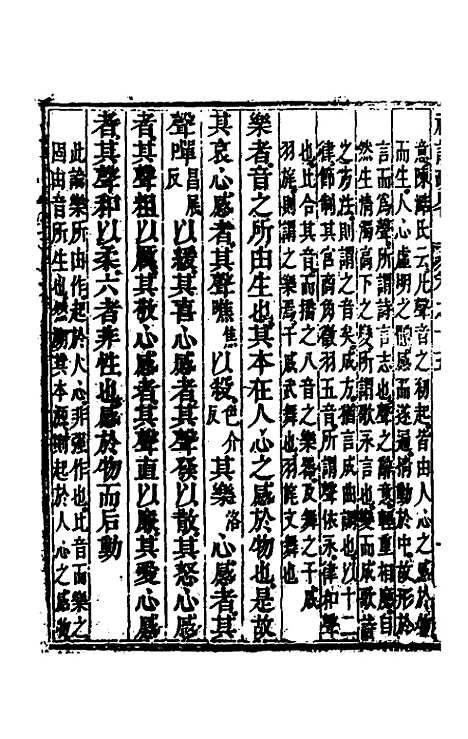 意陳澔氏云凡聲音之初起皆由人心之感於物
而生人心虛明之體感而遂通情動於中故形於
言而爲聲所謂詩言志也聲之辭意輕重相應自
然生清濁高下之變所謂歌永言也變而成歌詩
之方法則謂之音矣成方猶言成曲調也以十二
律節制其宮商角徵羽五音所謂聲依永律和聲
也比合其音而播之八音之樂器及舞之干戚
羽旄則謂之樂焉干戚武舞也羽旄文舞也
樂者音之所由生也其本在人心之感於物也是故
其哀心感者其聲噍焦以殺色介反其樂洛心感者其
聲嘽昌展反以緩其喜心感者其聲發以散其怒心感
者其聲粗以厲其敬心感者其聲直以廉其愛心感
者其聲和以柔六者非性也感於物而后動
此論樂所由作起於人心非強作也比音而樂之
固由音所生也然溯其本源則起於人心之感